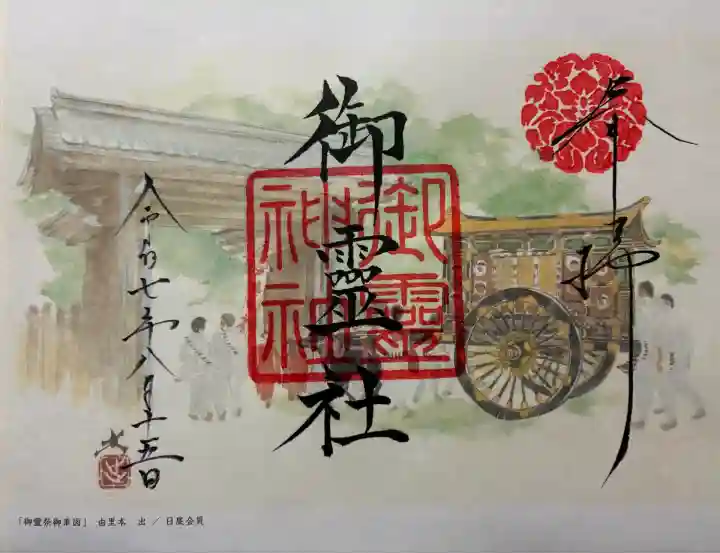 奉拝
御霊社
御靈
神社
令和七年八月十五日
出
「御霊祭御車図」 由里本 出 / 日展会員